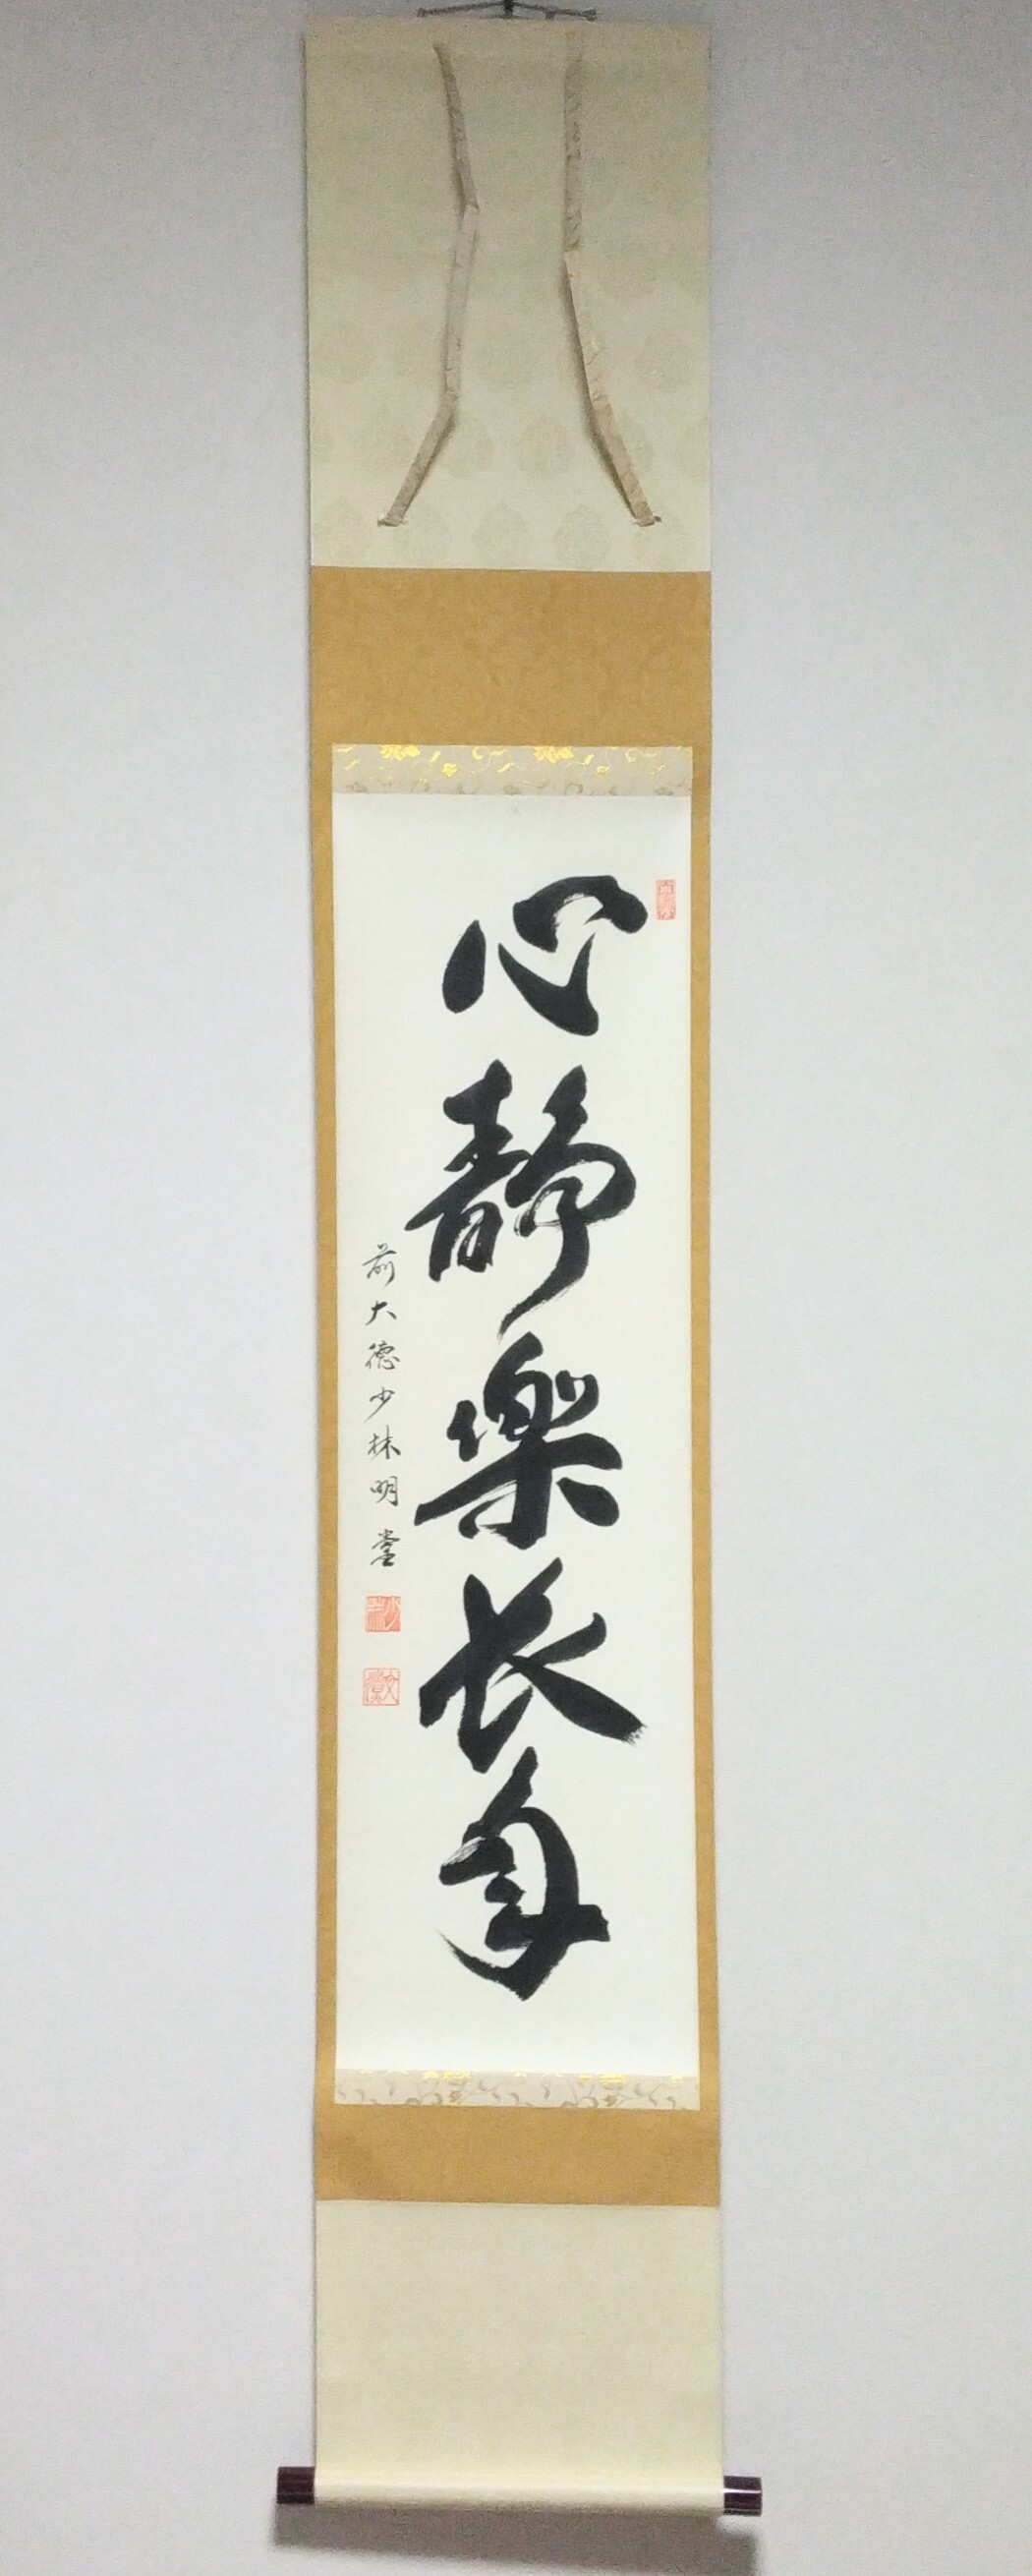 心静樂長年
前大徳少林明堂